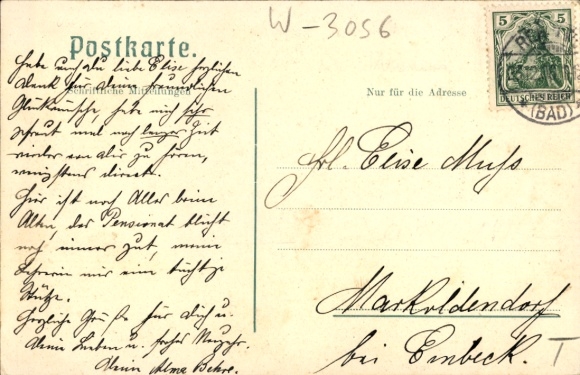 W-3056
Postkarte.
Schriftliche Mitteilungen
Nur für die Adresse
5 5
DEUTSCHES REICH
(BAD)
Habe auch du liebe Elise herzlichen
Dank für deine freundlichen
Glückwünsche, habe mich sehr
gefreut mal nach langer Zeit
wieder von dir zu hören,
wenigstens direkt.
Hier ist noch Alles beim
Alten, das Pensionat blüht
noch immer gut, meine
mir eine tüchtige
Stütze.
Herzliche Grüße für dich u.
deine Lieben u. frohes Neujahr.
Deine Alma
Frl. Elise Muss
Markoldendorf
bei Einbeck.
T